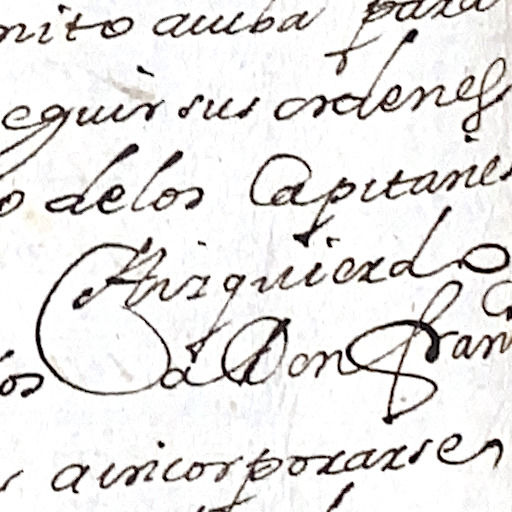 nito arriba para
eguir sus ordenes
o delos Capitanes
Yrizquierdo
los a Don fran
aincorporarse